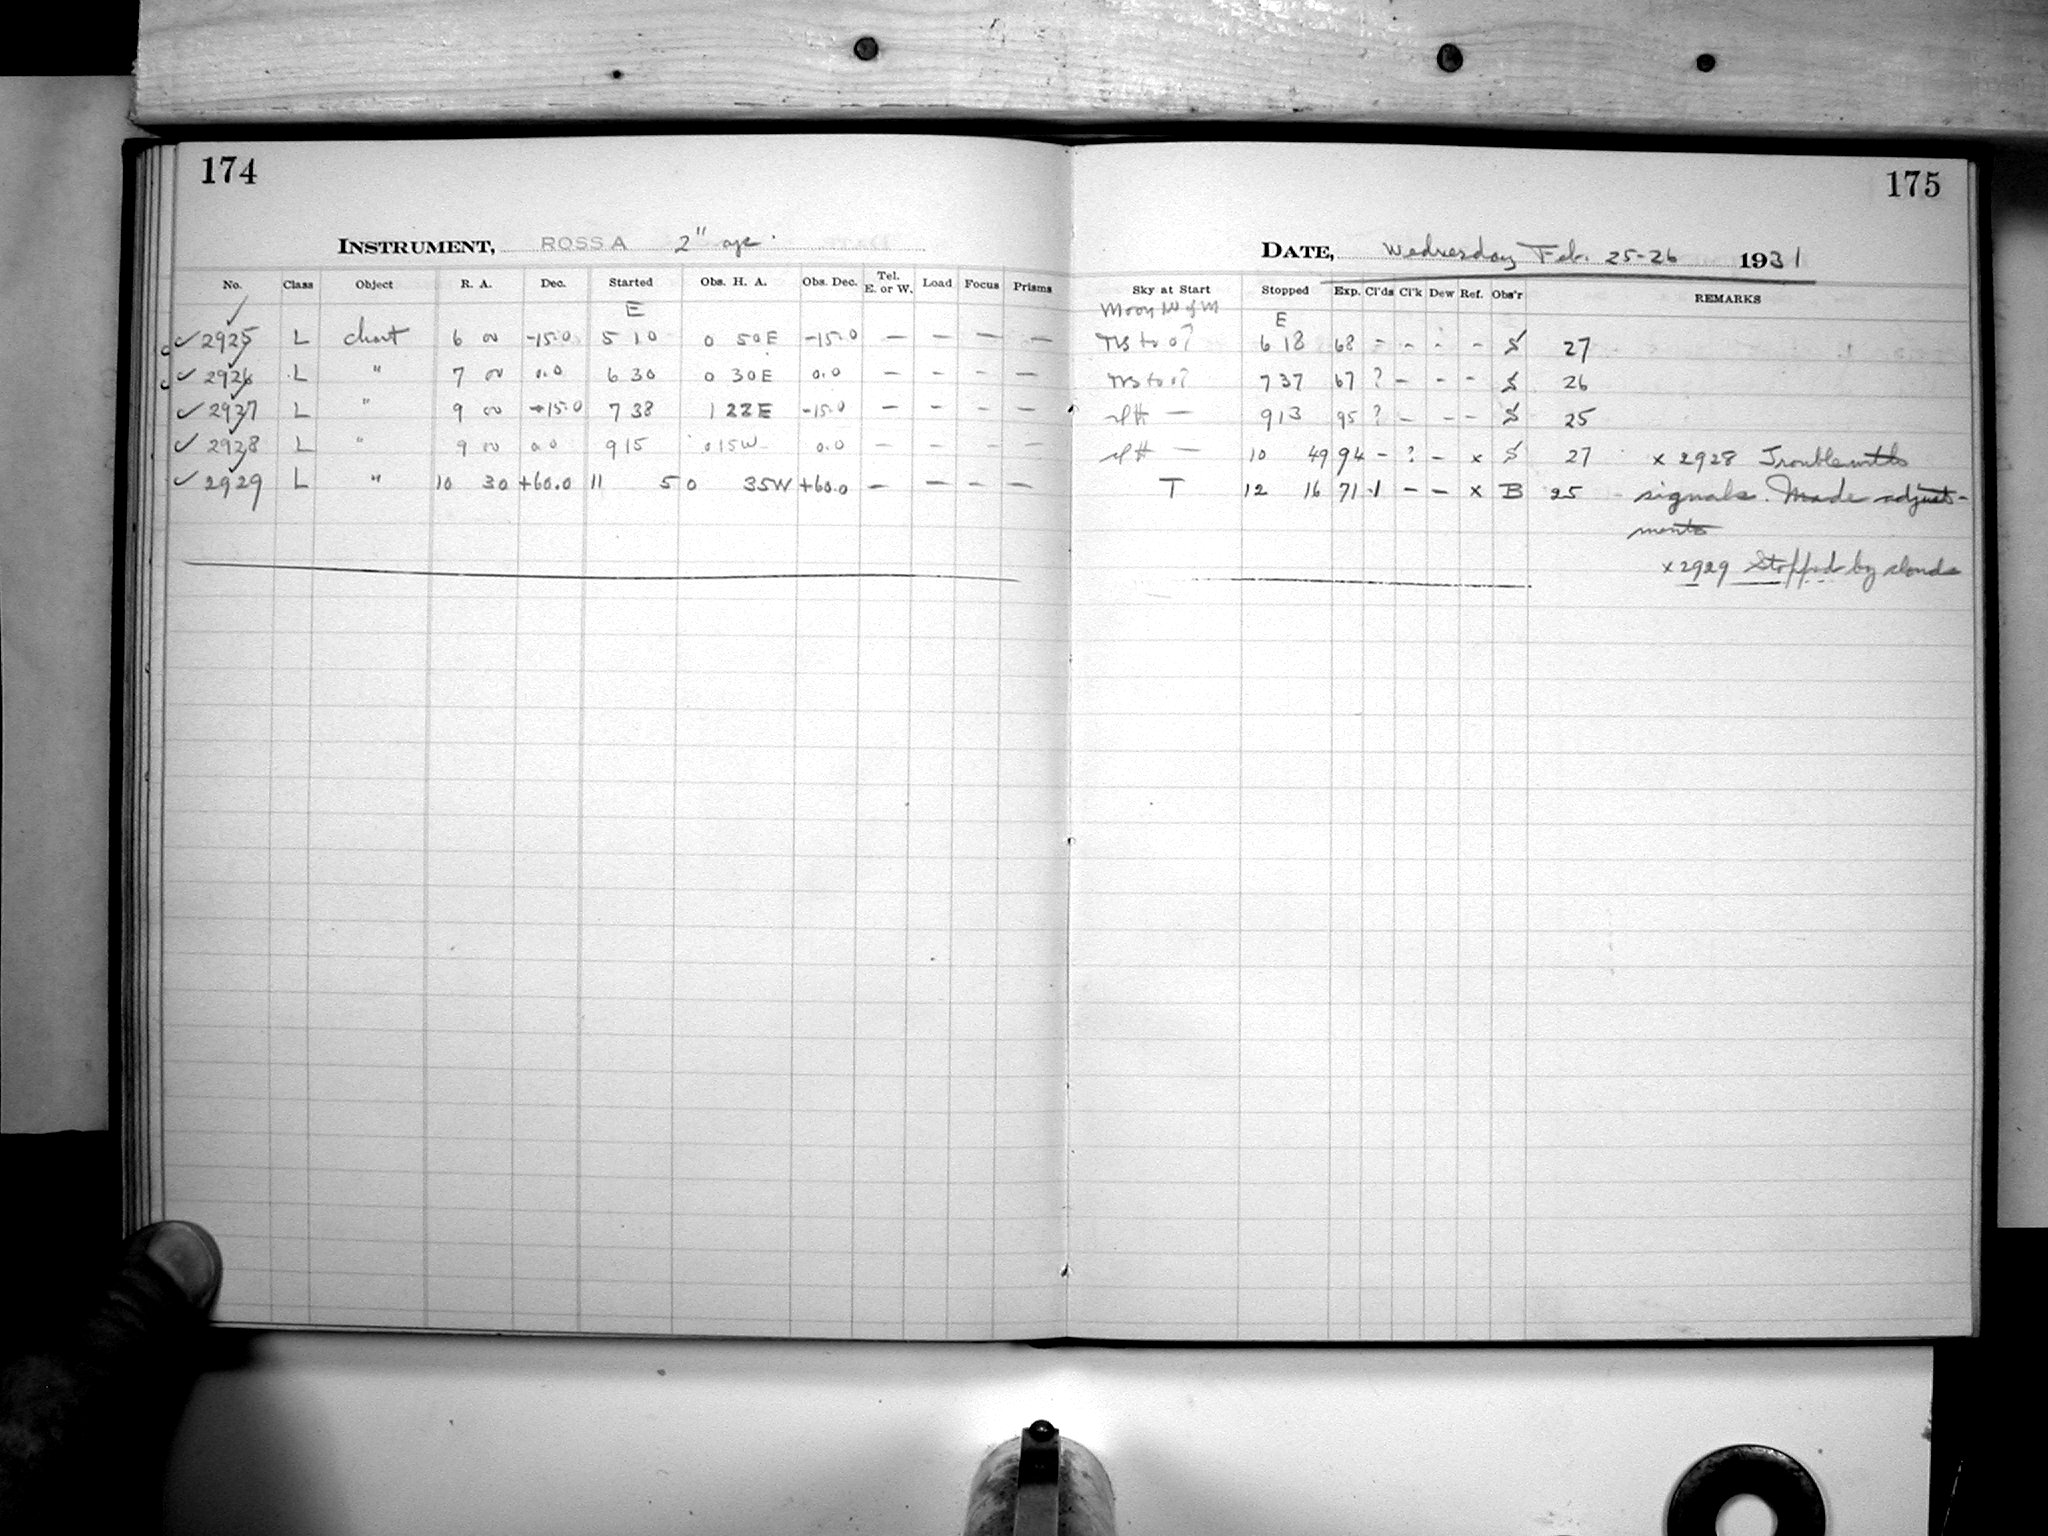 174
175
INSTRUMENT, ROSS A 2" ape.
DATE, Wednesday Feb. 25-26 1931
No. Class Object R. A. Dec. Started Obs. H. A. Obs. Dec. Tel. E. or W. Load Focus Prisms Sky at Start Stopped Exp. Cl'ds Cl'k Dew Ref. Obs'r REMARKS
E Moon W of M E
✓ 2925 L chart 6 00 -15.0 5 10 0 50E -15.0 — — — — 6 18 68 - - - - S 27
✓ 2926 L " 7 00 0.0 6 30 0 30E 0.0 — — — — 7 37 67 ? - - - S 26
✓ 2937 L " 9 00 -15.0 7 38 1 22E -15.0 — - - — — 9 13 95 ? - - - S 25
✓ 2928 L " 9 00 0.0 9 15 0 15W 0.0 — — — — — 10 49 94 - ? - x S 27 x 2928 Trouble with
✓ 2929 L " 10 30 +60.0 11 5 0 35W +60.0 — — — — T 12 16 71 .1 - - x B 25 signals. Made adjust-
ments
x 2929 Stopped by clouds